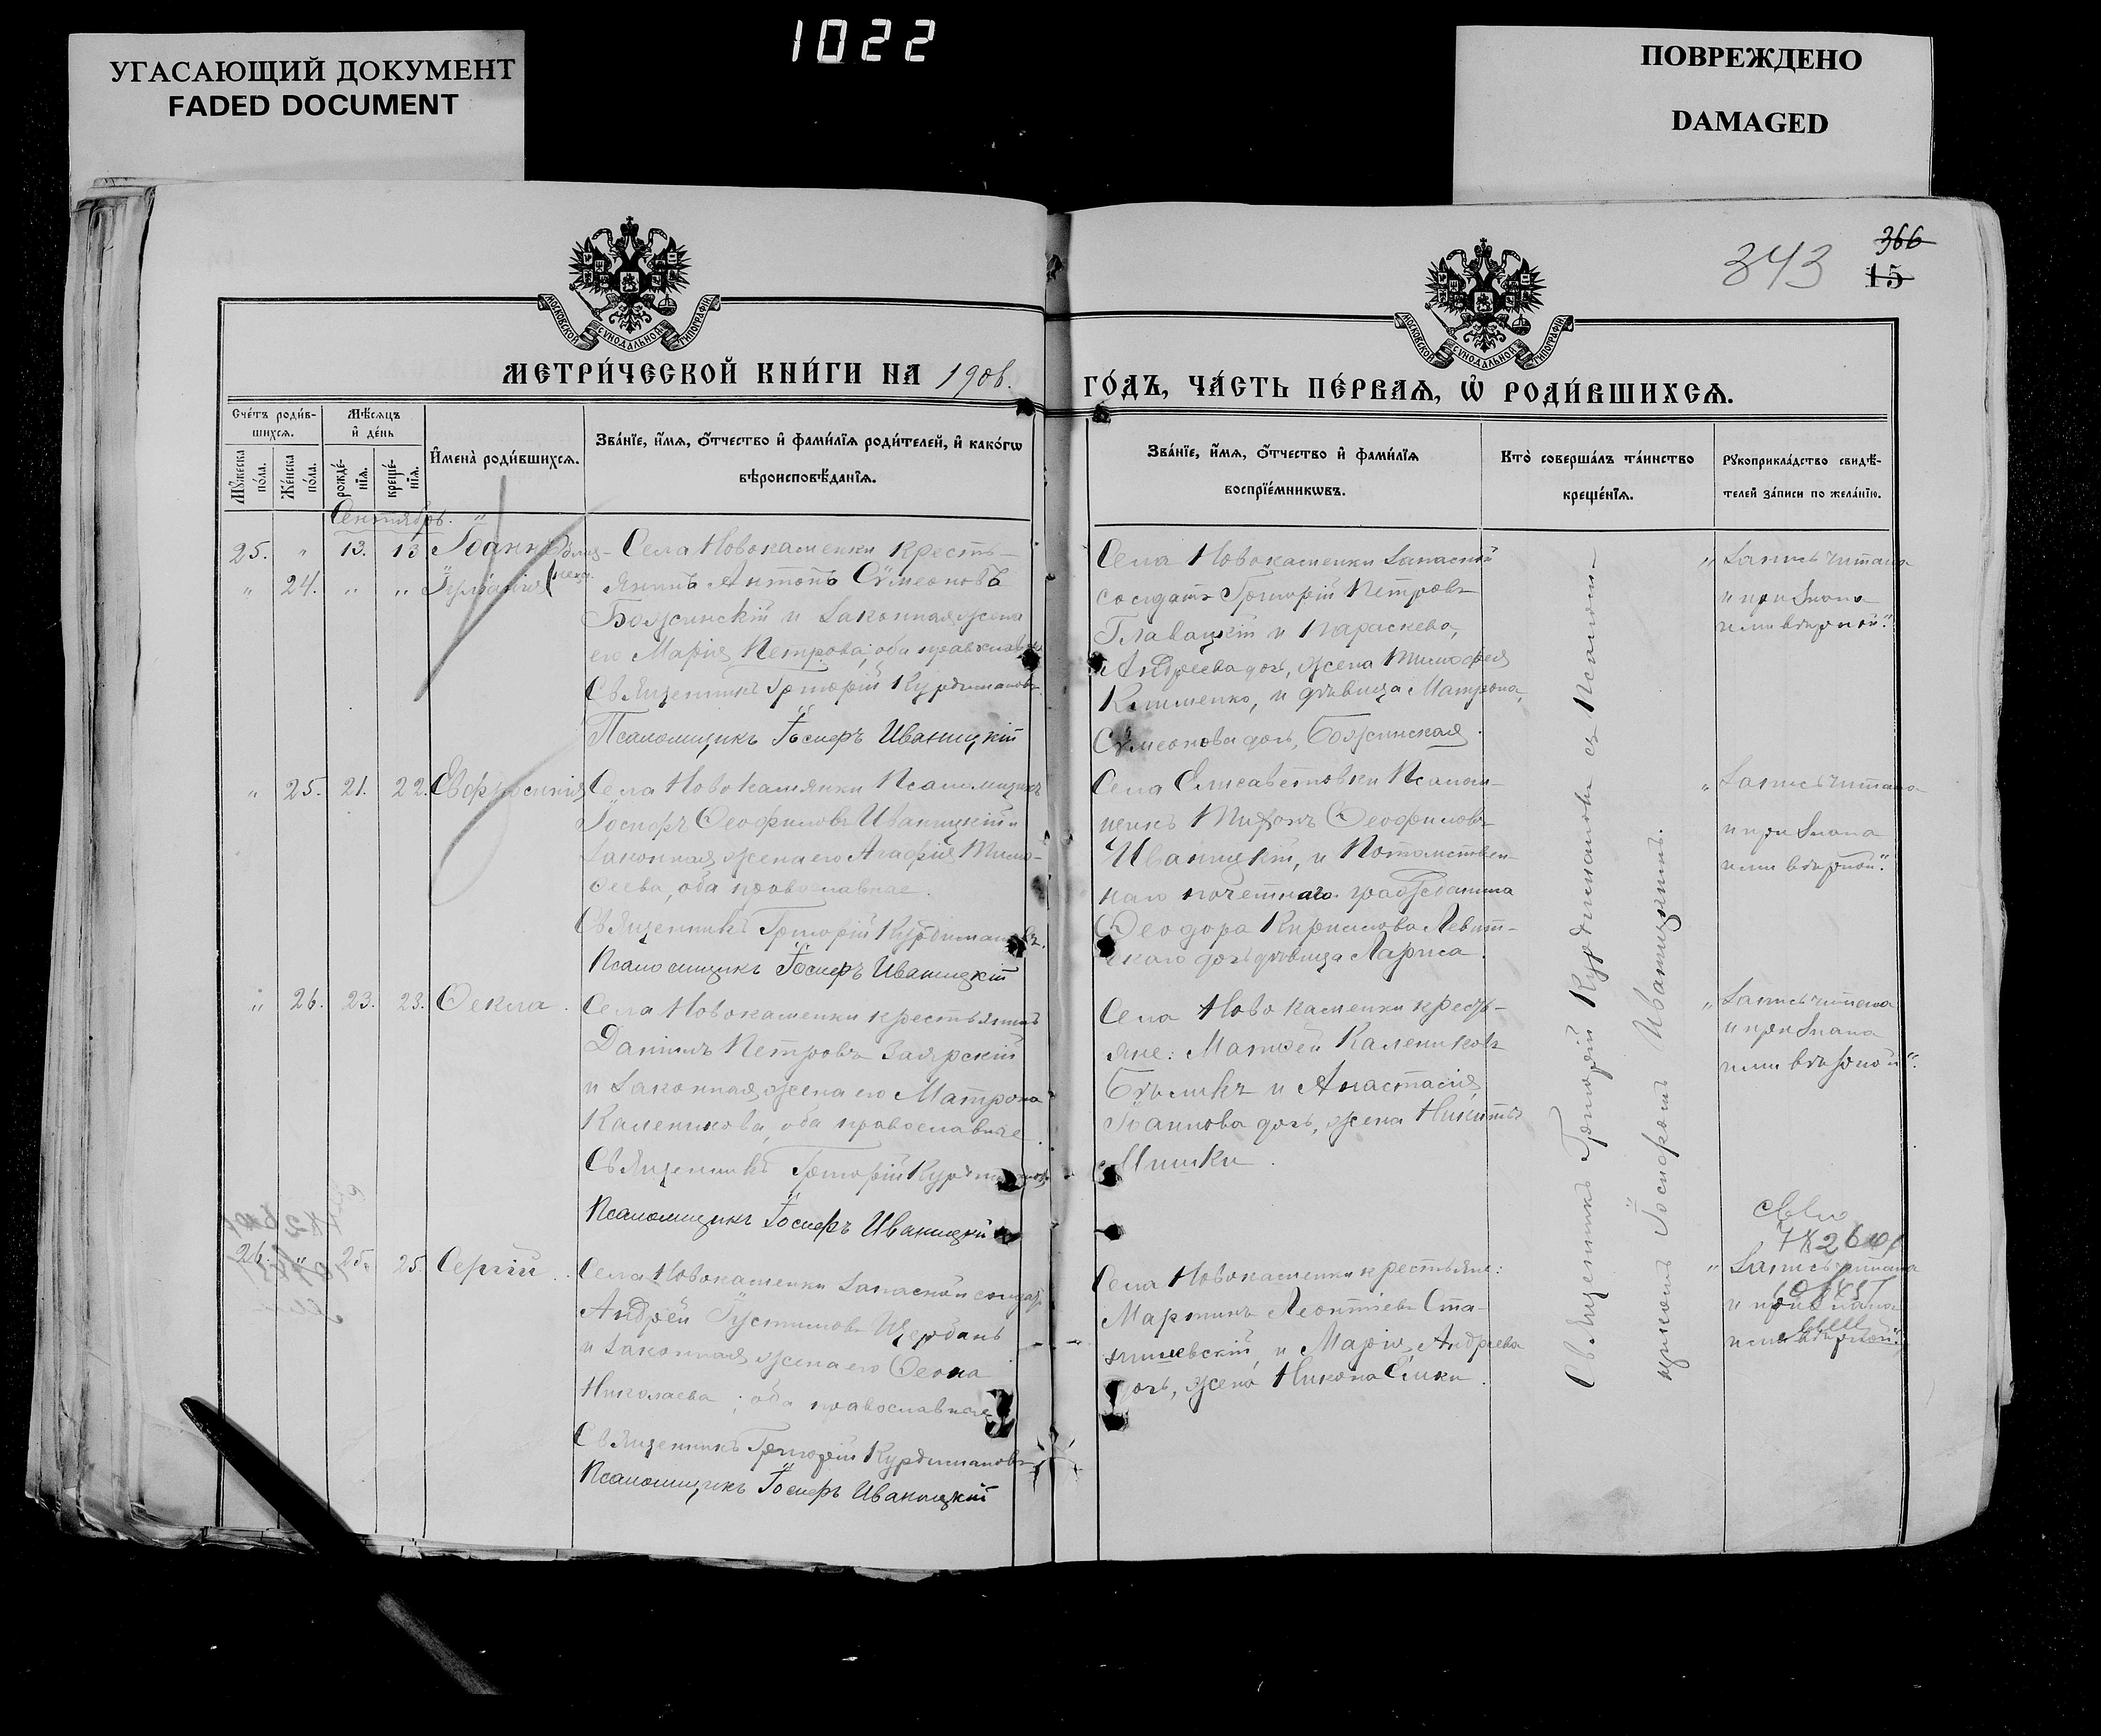 1022
УГАСАЮЩИЙ ДОКУМЕНТ
FADED DOCUMENT
ПОВРЕЖДЕНО
DAMAGED
343
366
15
МОСКОВСКОЙ СѴНОДАЛЬНОЙ ТИПОГРАФІИ
МОСКОВСКОЙ СѴНОДАЛЬНОЙ ТИПОГРАФІИ
МЕТРИ́ЧЕСКОЙ КНИ́ГИ НА 1906.
ГО́ДЪ, ЧА́СТЬ ПЕ́РВАѦ, Ѡ҆ РОДИ́ВШИХСѦ.
Сче́тъ роди́в-
шихсѧ.
Мѣ́сѧцъ
и҆ де́нь
Мꙋ́жеска
по́ла.
Же́нска
по́ла.
рожде́-
нїѧ.
креще́-
нїѧ.
И҆мена̀ роди́вшихсѧ.
Зва́нїе, и҆́мѧ, ѻ҆́тчество и҆ фами́лїѧ роди́телей, и҆ како́гѡ
вѣроисповѣ́данїѧ.
Зва́нїе, и҆́мѧ, ѻ҆́тчество и҆ фами́лїѧ
воспрїе́мникѡвъ.
Кто̀ соверша́лъ та́инство
креще́нїѧ.
Рꙋкоприкла́дство свидѣ́-
телей за́писи по жела́нїю.
Сентябрь. "
25. " 13. 13 Іоаннъ близ-
" 24. " " Іуліанія нецы.
Села Новокаменки кресть-
янинъ Антонъ Сѵмеоновъ
Божинскій и законная жена
его Марія Петрова, оба православные
Священникъ Григорій Курдимановъ.
Псаломщикъ Іосифъ Иваницкій
Села Новокаменки запасной
солдатъ Григорій Петровъ
Главацкій и Параскева,
Андреева дочь, жена Тимофея
Клименко, и дѣвица Матрона,
Сѵмеонова дочь, Божинская.
"Запись читана
и признана
ими вѣрной."
" 25. 21. 22. Евфросинія
Села Новокамянки Псаломщикъ
Іосифъ Ѳеофиловъ Иваницкій и
законная жена его Агафія Тимо-
ѳеева, оба православные.
Священникъ Григорій Курдимановъ.
Псаломщикъ Іосифъ Иваницкій
Села Елисаветовки Псалом-
щикъ Тифонъ Ѳеофиловъ
Иваницкій, и Потомствен-
наго почетнаго гражданина
Ѳеодора Кириллова Левит-
скаго дочь дѣвица Лариса.
"Запись читана
и признана
ими вѣрной."
" 26. 23. 23. Ѳекла.
Села Новокаменки крестьянинъ
Даніилъ Петровъ Заярскій
и законная жена его Матрона
Каленикова, оба православные.
Священникъ Григорій Курдимановъ
Псаломщикъ Іосифъ Иваницкій
Села Новокаменки кресть-
яне: Матѳей Калениковъ
Бѣликъ и Анастасія,
Іоаннова дочь, жена Никиты
Мишки.
"Запись читана
и признана
ими вѣрной."
26. " 25. 25. Сергій.
Села Новокаменки запасной солдатъ
Андрей Іустиновъ Щербань
и законная жена его Ѳеона
Николаева; оба православные
Священникъ Григорій Курдимановъ
Псаломщикъ Іосифъ Иваницкій
Села Новокаменки крестьяне:
Мартинъ Леонтіевъ Ста-
нишевскій, и Марія Андреева
дочь, жена Никона Слики.
"Запись читана
и признана
ими вѣрной."
Священникъ Григорій Курдимановъ съ Псалом-
щикомъ Іосифомъ Иваницкимъ.